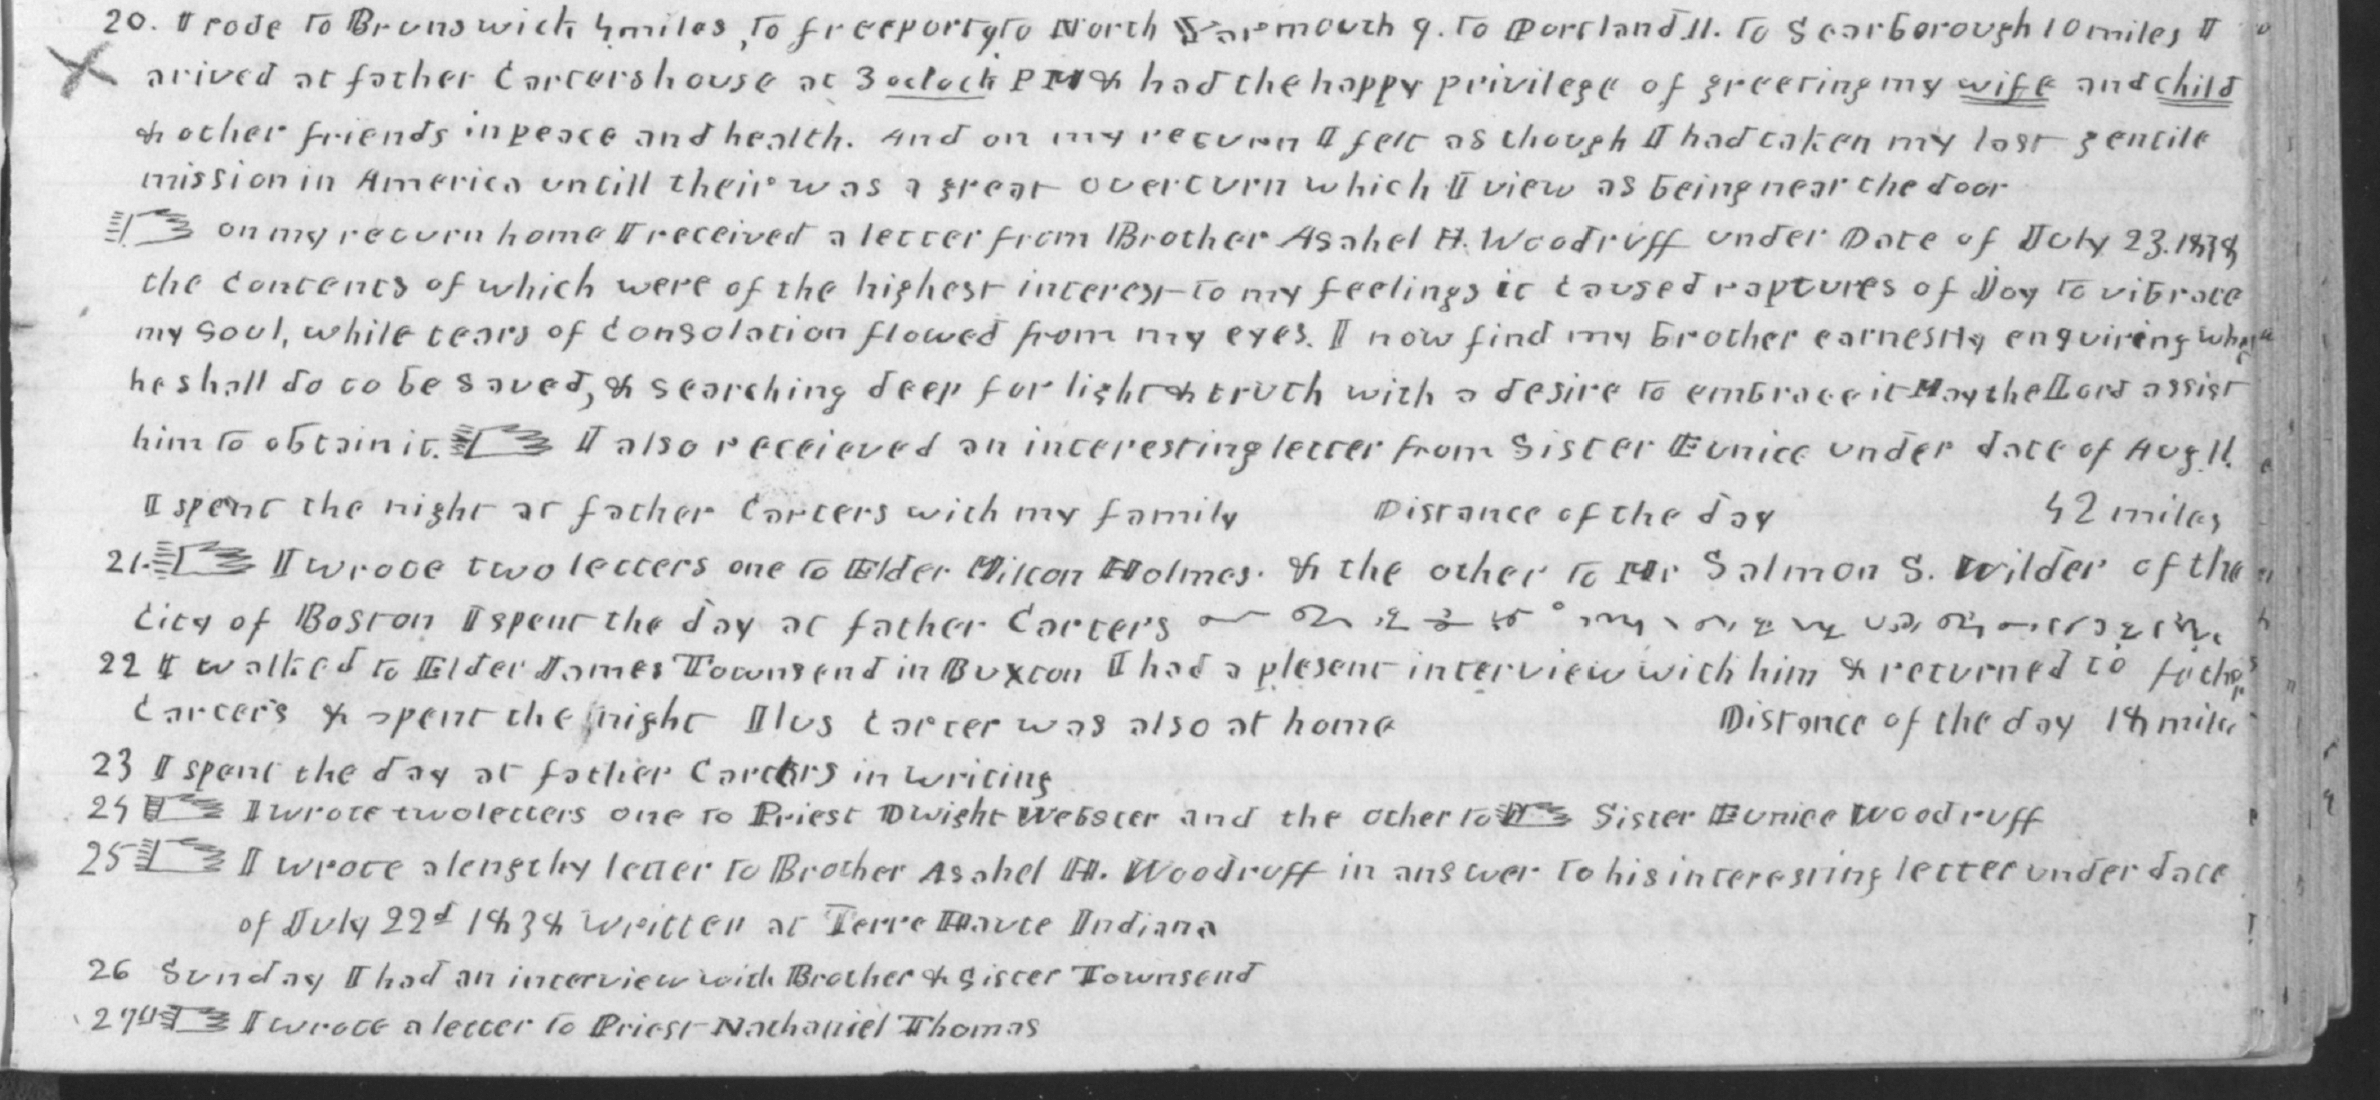 20. I rode to Brunswick 4 miles, to freeport 9 to North Yarmouth 9. to Portland 11. to Scarborough 10 miles I
arived at father Carters house at 3 oclock PM & had the happy privilege of greeting my wife and child
& other friends in peace and health. And on my return I felt as though I had taken my last gentile
mission in America untill their was a great overturn which I view as being near the door
on my return home I received a letter from Brother Asahel H. Woodruff under Date of July 23. 1838
the contents of which were of the highest interest to my feelings it caused raptures of Joy to vibrate
my soul, while tears of consolation flowed from my eyes. I now find my brother earnestly enquiring
he shall do to be saved, & searching deep for light & truth with a desire to embrace it May the Lord assist
him to obtain it. I also receieved an interesting letter from Sister Eunice under date of Aug 11.
I spent the night at father Carters with my family Distance of the day 42 miles
21. I wrote two letters one to Elder Milton Holmes. & the other to Mr Salmon S. Wilder of the
City of Boston I spent the day at father Carters
22 I walked to Elder James Townsend in Buxton I had a plesent interview with him & returned to father
Carters & spent the night Ilus Carter was also at home Distance of the day 18 miles
23 I spent the day at father Carters in writing
24 I wrote two letters one to Priest Dwight Webster and the other to Sister Eunice Woodruff
25 I wrote a lengthy letter to Brother Asahel H. Woodruff in answer to his interesting letter under date
of July 22d 1838 written at Terre Haute Indiana
26 Sunday I had an interview with Brother & Sister Townsend
27th I wrote a letter to Priest Nathaniel Thomas